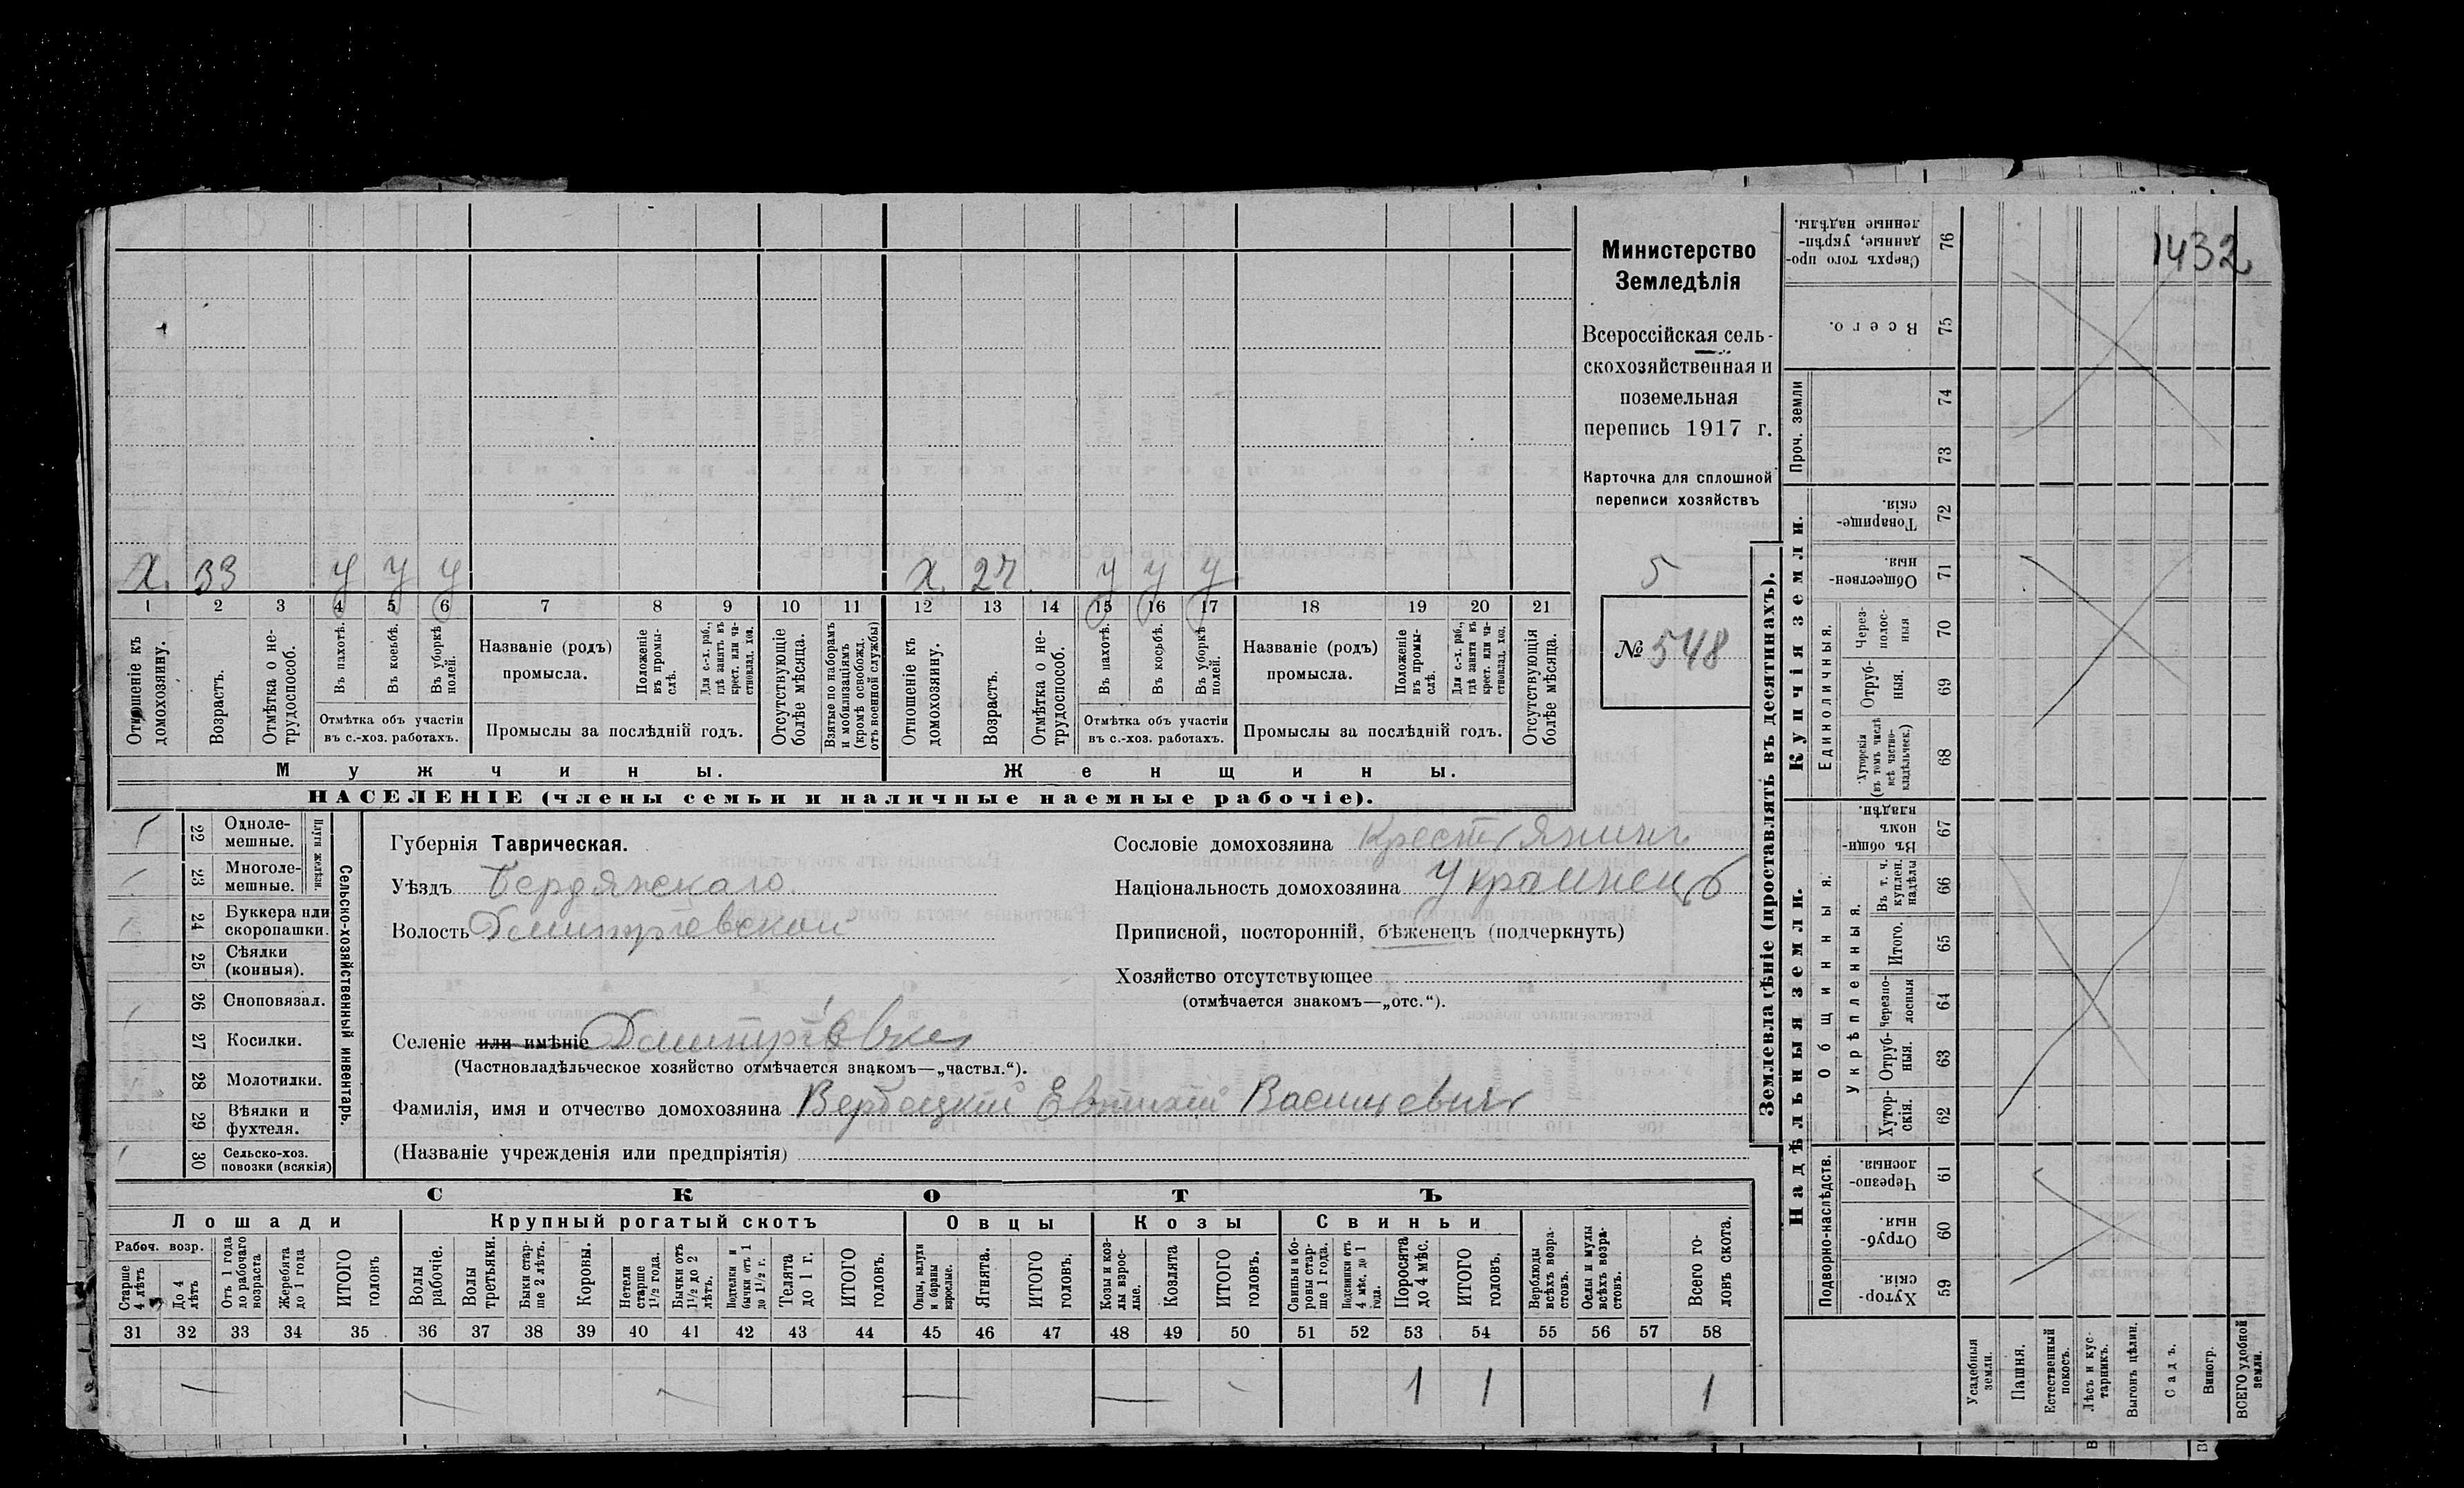 1432
Министерство
Земледѣлія
Всероссійская сель-
скохозяйственная и
поземельная
перепись 1917 г.
Карточка для сплошной
переписи хозяйствъ
5
№ 548
Х. 33 У У У Х. 27 У У У
1 2 3 4 5 6 7 8 9 10 11 12 13 14 15 16 17 18 19 20 21
Отношеніе къ домохозяину.
Возрастъ.
Отмѣтка о не-трудоспособ.
Въ пахотѣ.
Въ косьбѣ.
Въ уборкѣ полей.
Отмѣтка объ участіи
въ с.-хоз. работахъ.
Названіе (родъ)
промысла.
Положеніе въ промы-слѣ.
Для с.-х. раб., гдѣ занятъ въ крест. или ча-стновлад. хоз.
Промыслы за послѣдній годъ.
Отсутствующіе болѣе мѣсяца.
Взятые по наборамъ и мобилизаціямъ (кромѣ освобожд. отъ военной службы)
Отношеніе къ домохозяину.
Возрастъ.
Отмѣтка о не-трудоспособ.
Въ пахотѣ.
Въ косьбѣ.
Въ уборкѣ полей.
Отмѣтка объ участіи
въ с.-хоз. работахъ.
Названіе (родъ)
промысла.
Положеніе въ промы-слѣ.
Для с.-х. раб., гдѣ занята въ крест. или ча-стновлад. хоз.
Промыслы за послѣдній годъ.
Отсутствующія болѣе мѣсяца.
Мужчины. Женщины.
НАСЕЛЕНІЕ (члены семьи и наличные наемные рабочіе).
22 Одноле-мешные.
23 Многоле-мешные.
Плуги желѣзн.
24 Буккера или скоропашки.
25 Сѣялки (конныя).
26 Сноповязал.
27 Косилки.
28 Молотилки.
29 Вѣялки и фухтеля.
30 Сельско-хоз. повозки (всякія)
Сельско-хозяйственный инвентарь.
Губернія Таврическая.
Уѣздъ Бердянскаго
Волость Дмитріевской
Сословіе домохозяина Крестьянинъ
Національность домохозяина Украинецъ
Приписной, посторонній, бѣженецъ (подчеркнуть)
Хозяйство отсутствующее
(отмѣчается знакомъ—„отс.“).
Селеніе или имѣніе Дмитріевка
(Частновладѣльческое хозяйство отмѣчается знакомъ—„частвл.“).
Фамилія, имя и отчество домохозяина Вербецкій Евтихій
(Названіе учрежденія или предпріятія)
СКОТЪ
Лошади Крупный рогатый скотъ Овцы Козы Свиньи
Рабоч. возр.
Старше 4 лѣтъ
До 4 лѣтъ
Отъ 1 года до рабочаго возраста
Жеребята до 1 года
ИТОГО головъ
Волы рабочіе.
Волы третьяки.
Быки стар-ше 2 лѣтъ.
Коровы.
Нетели старше 1 1/2 года.
Бычки отъ 1 1/2 до 2 лѣтъ.
Подтелки и бычки отъ 1 до 1 1/2 г.
Телята до 1 г.
ИТОГО головъ.
Овцы, валухи и бараны взрослые.
Ягнята.
ИТОГО головъ.
Козы и коз-лы взрос-лые.
Козлята
ИТОГО головъ.
Свиньи и бо-ровы стар-ше 1 года.
Подсвинки отъ 4 мѣс. до 1 года.
Поросята до 4 мѣс.
ИТОГО головъ.
Верблюды всѣхъ возра-стовъ.
Ослы и мулы всѣхъ возра-стовъ.
Всего го-ловъ скота.
31 32 33 34 35 36 37 38 39 40 41 42 43 44 45 46 47 48 49 50 51 52 53 54 55 56 57 58
1 1 1
Землевладѣніе (проставлять въ десятинахъ).
Надѣльныя земли. Купчія земли.
Проч. земли
Подворно-наслѣдств.
Общинныя.
Укрѣпленныя.
Единоличныя.
Сверхъ того про-данные, укрѣп-ленные надѣлы. 76
Всего. 75
74
73
Товарище-скія. 72
Обществен-ныя 71
Через-полос-ныя 70
Отруб-ныя. 69
Хуторскія (въ томъ числѣ всѣ частно-владѣльческ.) 68
Въ общи-номъ владѣн. 67
Въ т. ч. куплен. надѣлы 66
Итого. 65
Черезпо-лосныя 64
Отруб-ныя. 63
Хутор-скія. 62
Черезпо-лосныя. 61
Отруб-ныя. 60
Хутор-скія. 59
Усадебныя земли.
Пашня.
Естественный покосъ.
Лѣсъ и кус-тарникъ.
Выгонъ цѣлин.
Садъ.
Виногр.
ВСЕГО удобной земли.